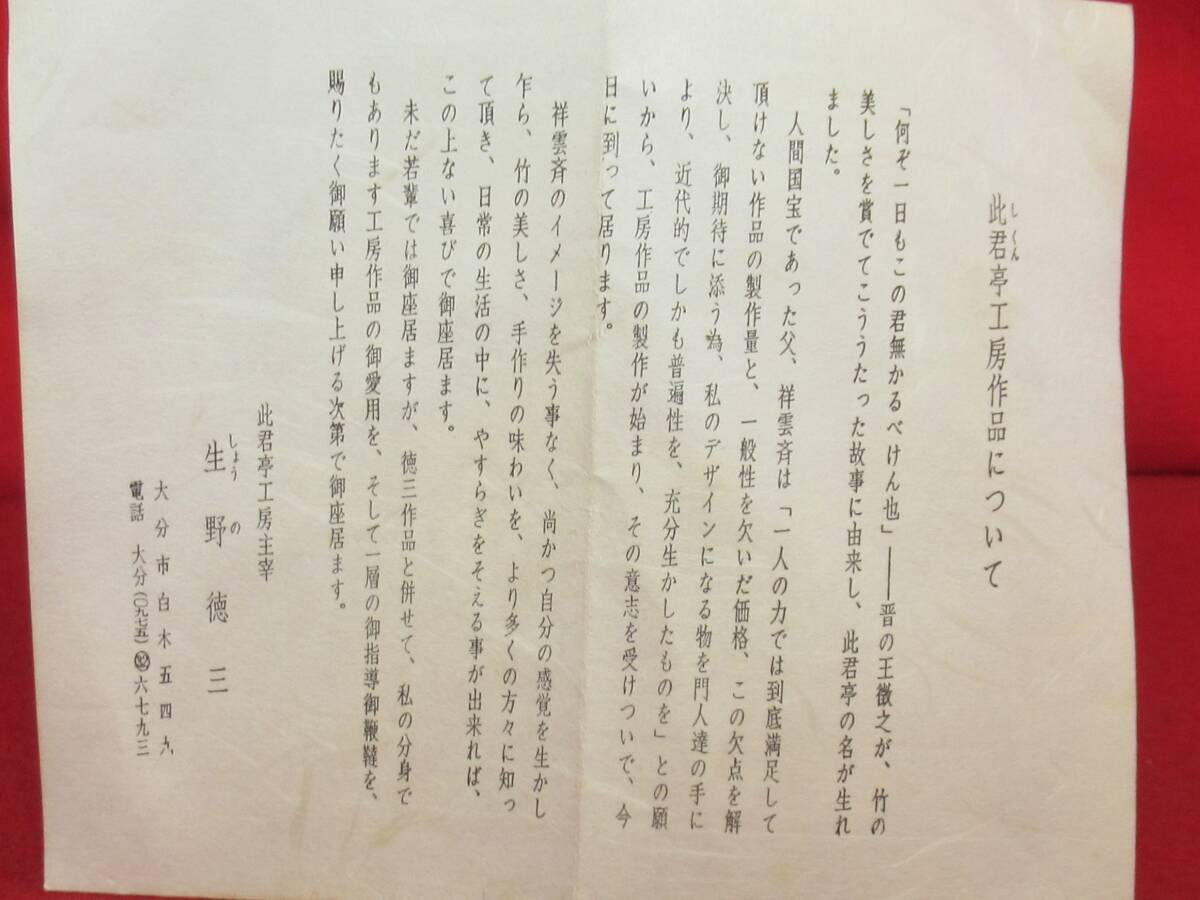 此君亭工房作品について
しくん
「何ぞ一日もこの君無かるべけん也」――晋の王徽之が、竹の
美しさを賞でてこううたった故事に由来し、此君亭の名が生れ
ました。
人間国宝であった父、祥雲斉は「一人の力では到底満足して
頂けない作品の製作量と、一般性を欠いだ価格、この欠点を解
決し、御期待に添う為、私のデザインになる物を門人達の手に
より、近代的でしかも普遍性を、充分生かしたものを」との願
いから、工房作品の製作が始まり、その意志を受けついで、今
日に到って居ります。
祥雲斉のイメージを失う事なく、尚かつ自分の感覚を生かし
乍ら、竹の美しさ、手作りの味わいを、より多くの方々に知っ
て頂き、日常の生活の中に、やすらぎをそえる事が出来れば、
この上ない喜びで御座居ます。
未だ若輩では御座居ますが、徳三作品と併せて、私の分身で
もあります工房作品の御愛用を、そして一層の御指導御鞭韃を、
賜りたく御願い申し上げる次第で御座居ます。
此君亭工房主宰
生野徳三
しょうの
大分市白木五四九
電話 大分(〇九七五)六七九三